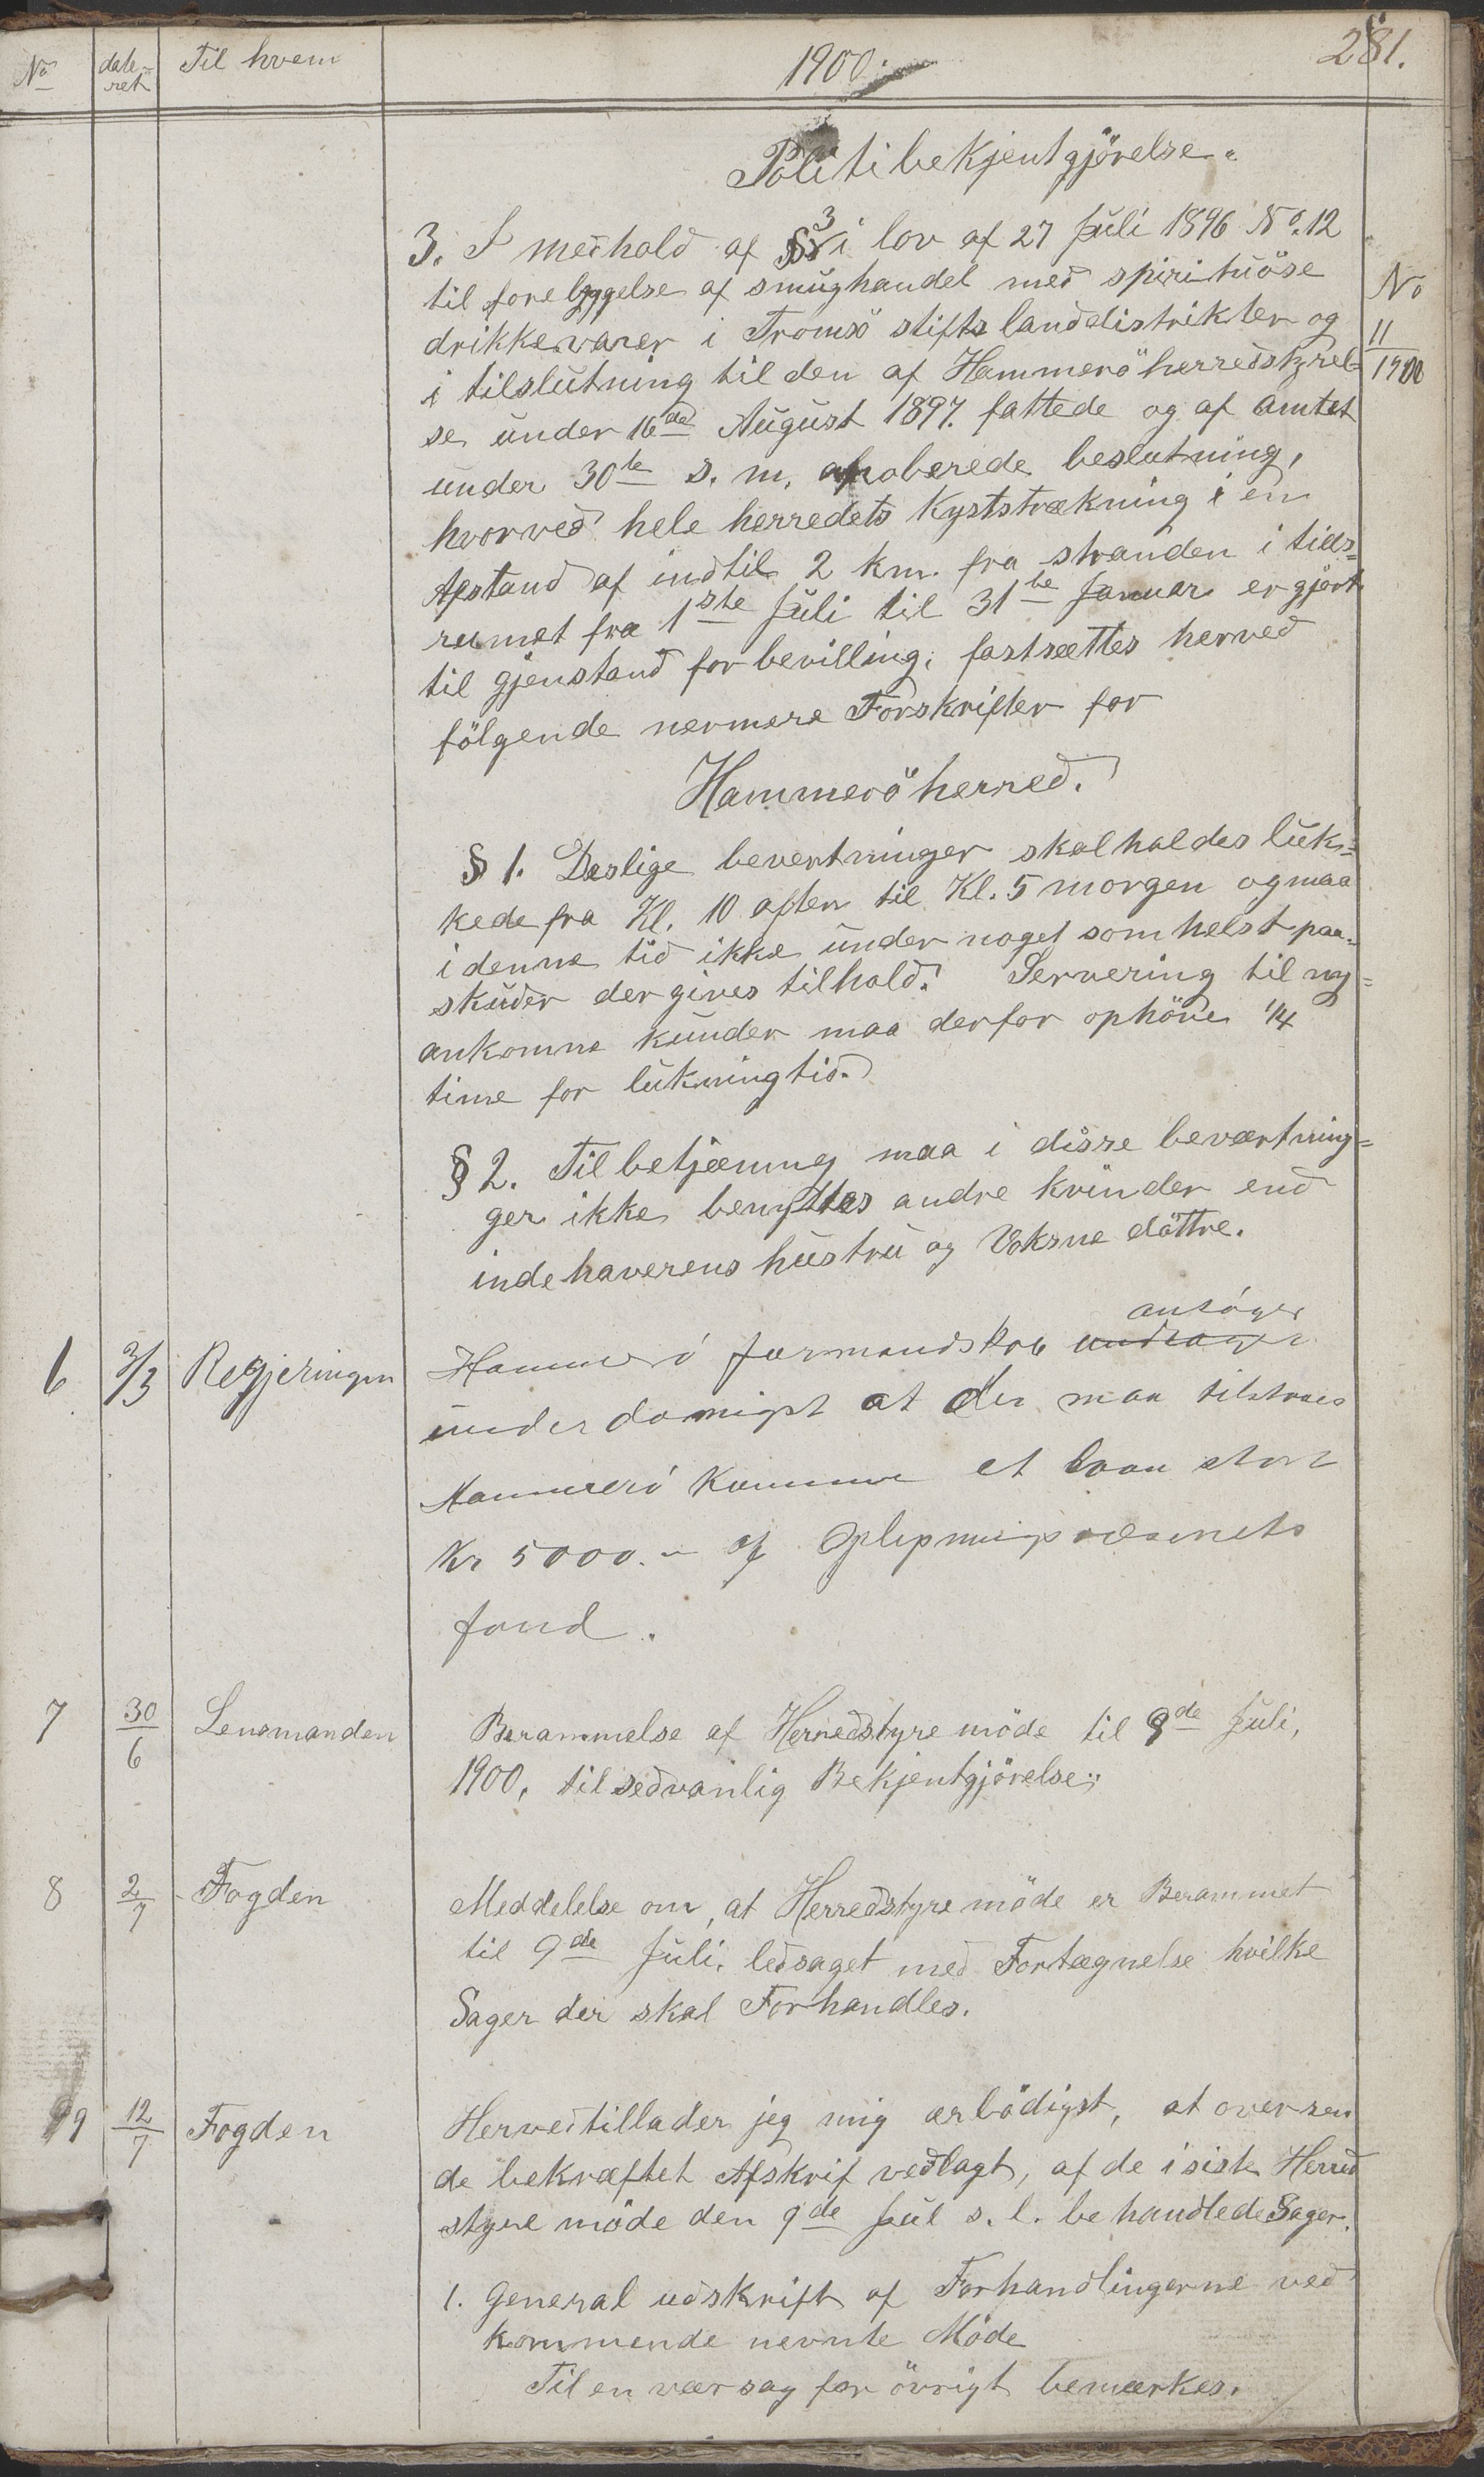 No date-ret Til hvem 1900. 281.
Politibekjentgjörelse.
3. I medhold af § 3 i lov af 27 Juli 1896 No. 12
til forebyggelse af smughandel med spirituöse
No
drikkevarer i Tromsö stifts landdistrikter og
11
i tilslutning til den af Hammerö herredstyrel-
1900
se under 16de August 1897. fattede og af amtet
under 30te s. m. aproberede beslutning,
hvorved hele herredets Kyststrækning i en
Afstand af indtil 2 km. fra stranden i tids-
rumet fra 1ste Juli til 31te Januar er gjort
til gjenstand for bevilling, fastsættes herved
fölgende nermere Forskrifter for
Hammerö herred.
§ 1. Deslige bevertninger skal holdes luk-
kede fra Kl. 10 aften til Kl. 5 morgen og maa
i denne tid ikke under noget som helst paa-
skuder der gives tilhold. Servering til ny-
ankomne kunder maa derfor ophöre 1/4
time for lukningtid.
§ 2. Til betjæning maa i disse beværtning-
ger ikke benyttes andre kvinder end
indehaverens hustru og Voksne döttre.
ansöger
6 3/3 Regjeringen Hammerö formandskab
underdanigst at der maa tilstaaes
Hammerö Kommune et laan stort
Kr 5000.- af Oplysningsvæsenets
fond.
7 30/6 Lensmanden Berammelse af Herredstyre möde til 9de Juli,
1900, til sedvanlig Bekjentgjörelse;
8 2/7 Fogden Meddelelse om, at Herredstyre möde er Berammet
til 9de Juli, ledsaget med Fortægnelse hvilke
Sager der skal Forhandles.
9 12/7 Fogden Herved tillader jeg mig ærbödigst, at oversen
de bekræftet Afskrif vedlagt, af de i siste Herred
styre möde den 9de Jul s. l. behandlede Sager.
1. General udskrift af Forhandlingerne ved
kommende nevnte Möde
Til en vær sag for övrigt bemærkes.